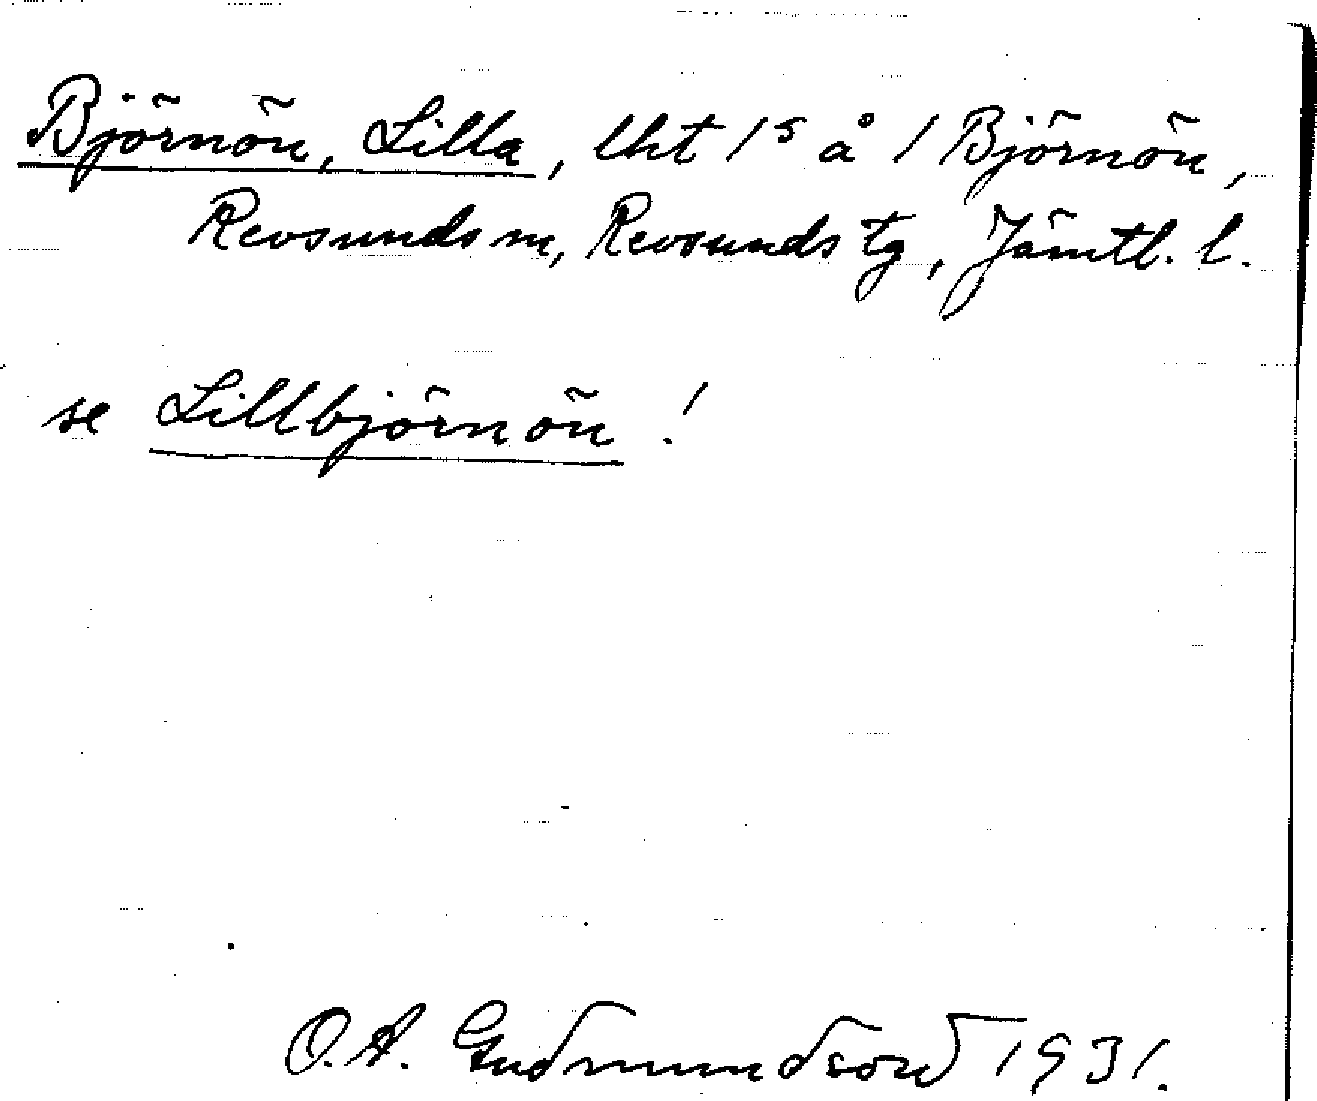 Björnön, Lilla, lht 1ˢ å 1 Björnön,
Revsunds sn, Revsunds tg, Jämtl. l.
se Lillbjörnön!
O. A. Gudmundsson 1931.